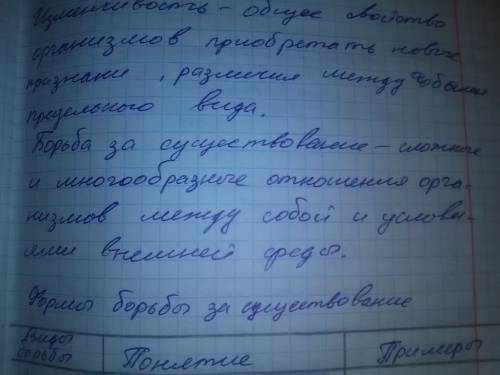 Изменчивость – общее свойство
организмов приобретать новые
признаки, различия между особями
предельного вида.
Борьба за существование – сложные
и многообразные отношения орга-
низмов между собой и услови-
ями внешней среды.
Формы борьбы за существование
Виды борьбы
Понятие
Примеры